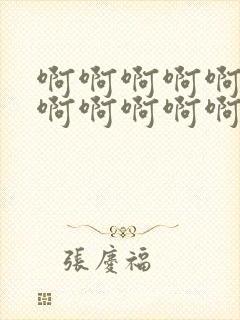 啊啊啊啊啊
啊啊啊啊啊
張慶福